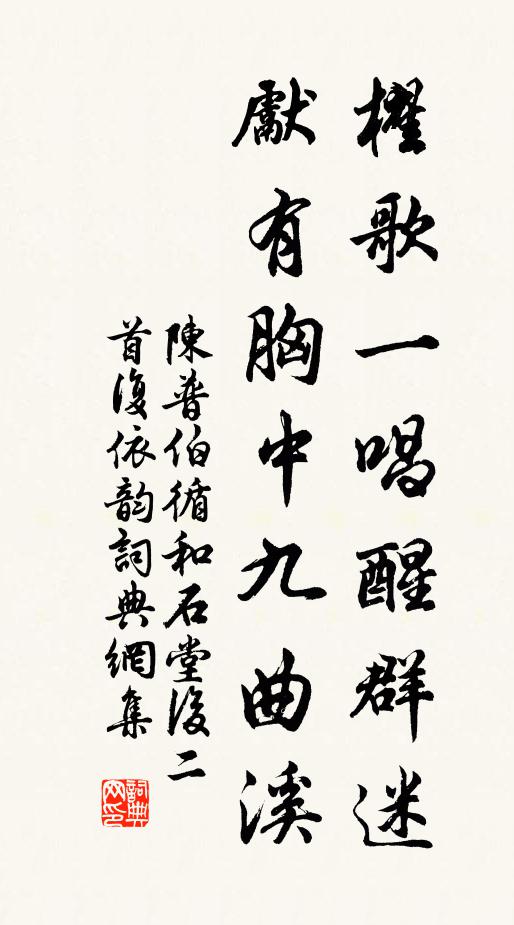 櫂歌一唱醒群迷
獻有胸中九曲溪
陳普伯循和石堂後二
首復依韵詞典網集
詞典
网印